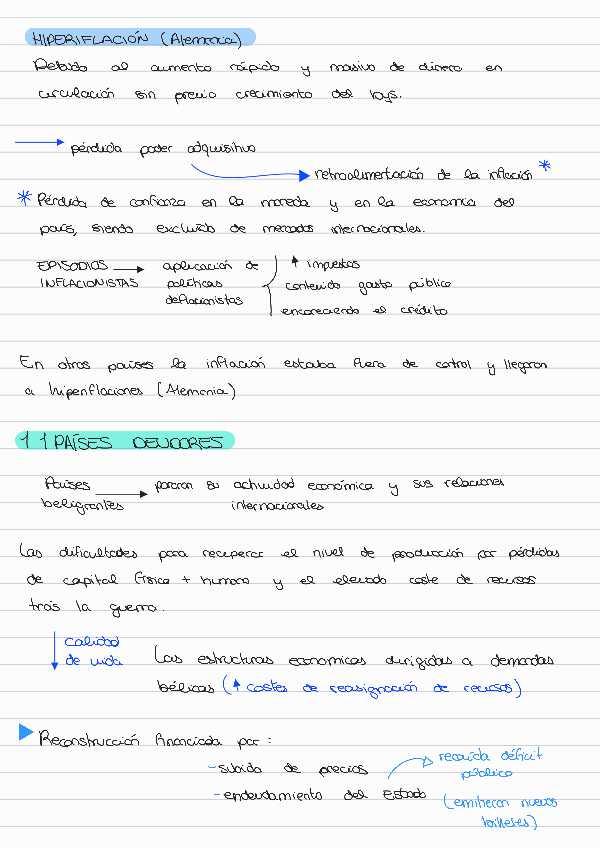 HIPERIFLACIÓN (Alemania)
Debido al aumento rápido y masivo de dinero en
circulación sin previo crecimiento del
→ pérdida poder adquisitivo
retroalimentación de la inflación *
* Pérdida de confianza en la moneda y en la economía del
país, siendo excluido de mercados internacionales.
EPISODIOS → aplicación de ↑ impuestos
INFLACIONISTAS políticas contenido gasto público
deflacionistas encareciendo el crédito
En otros países la inflación estaba fuera de control y llegaron
a hiperiflaciones (Alemania)
1 1 PAÍSES DEUDORES
Países → pararon su actividad económica y sus relaciones
beligrantes internacionales
Las dificultades para recuperar el nivel de producción por pérdidas
de capital físico + humano y el elevado coste de recursos
tras la guerra.
↓ calidad
de vida Las estructuras economicas dirigidas a demandas
bélicas (↑ costes de reasignación de recursos)
▶ Reconstrucción financiada por :
- subida de precios
- endeudamiento del Estado
déficit
público
(emitieron nuevos
billetes)